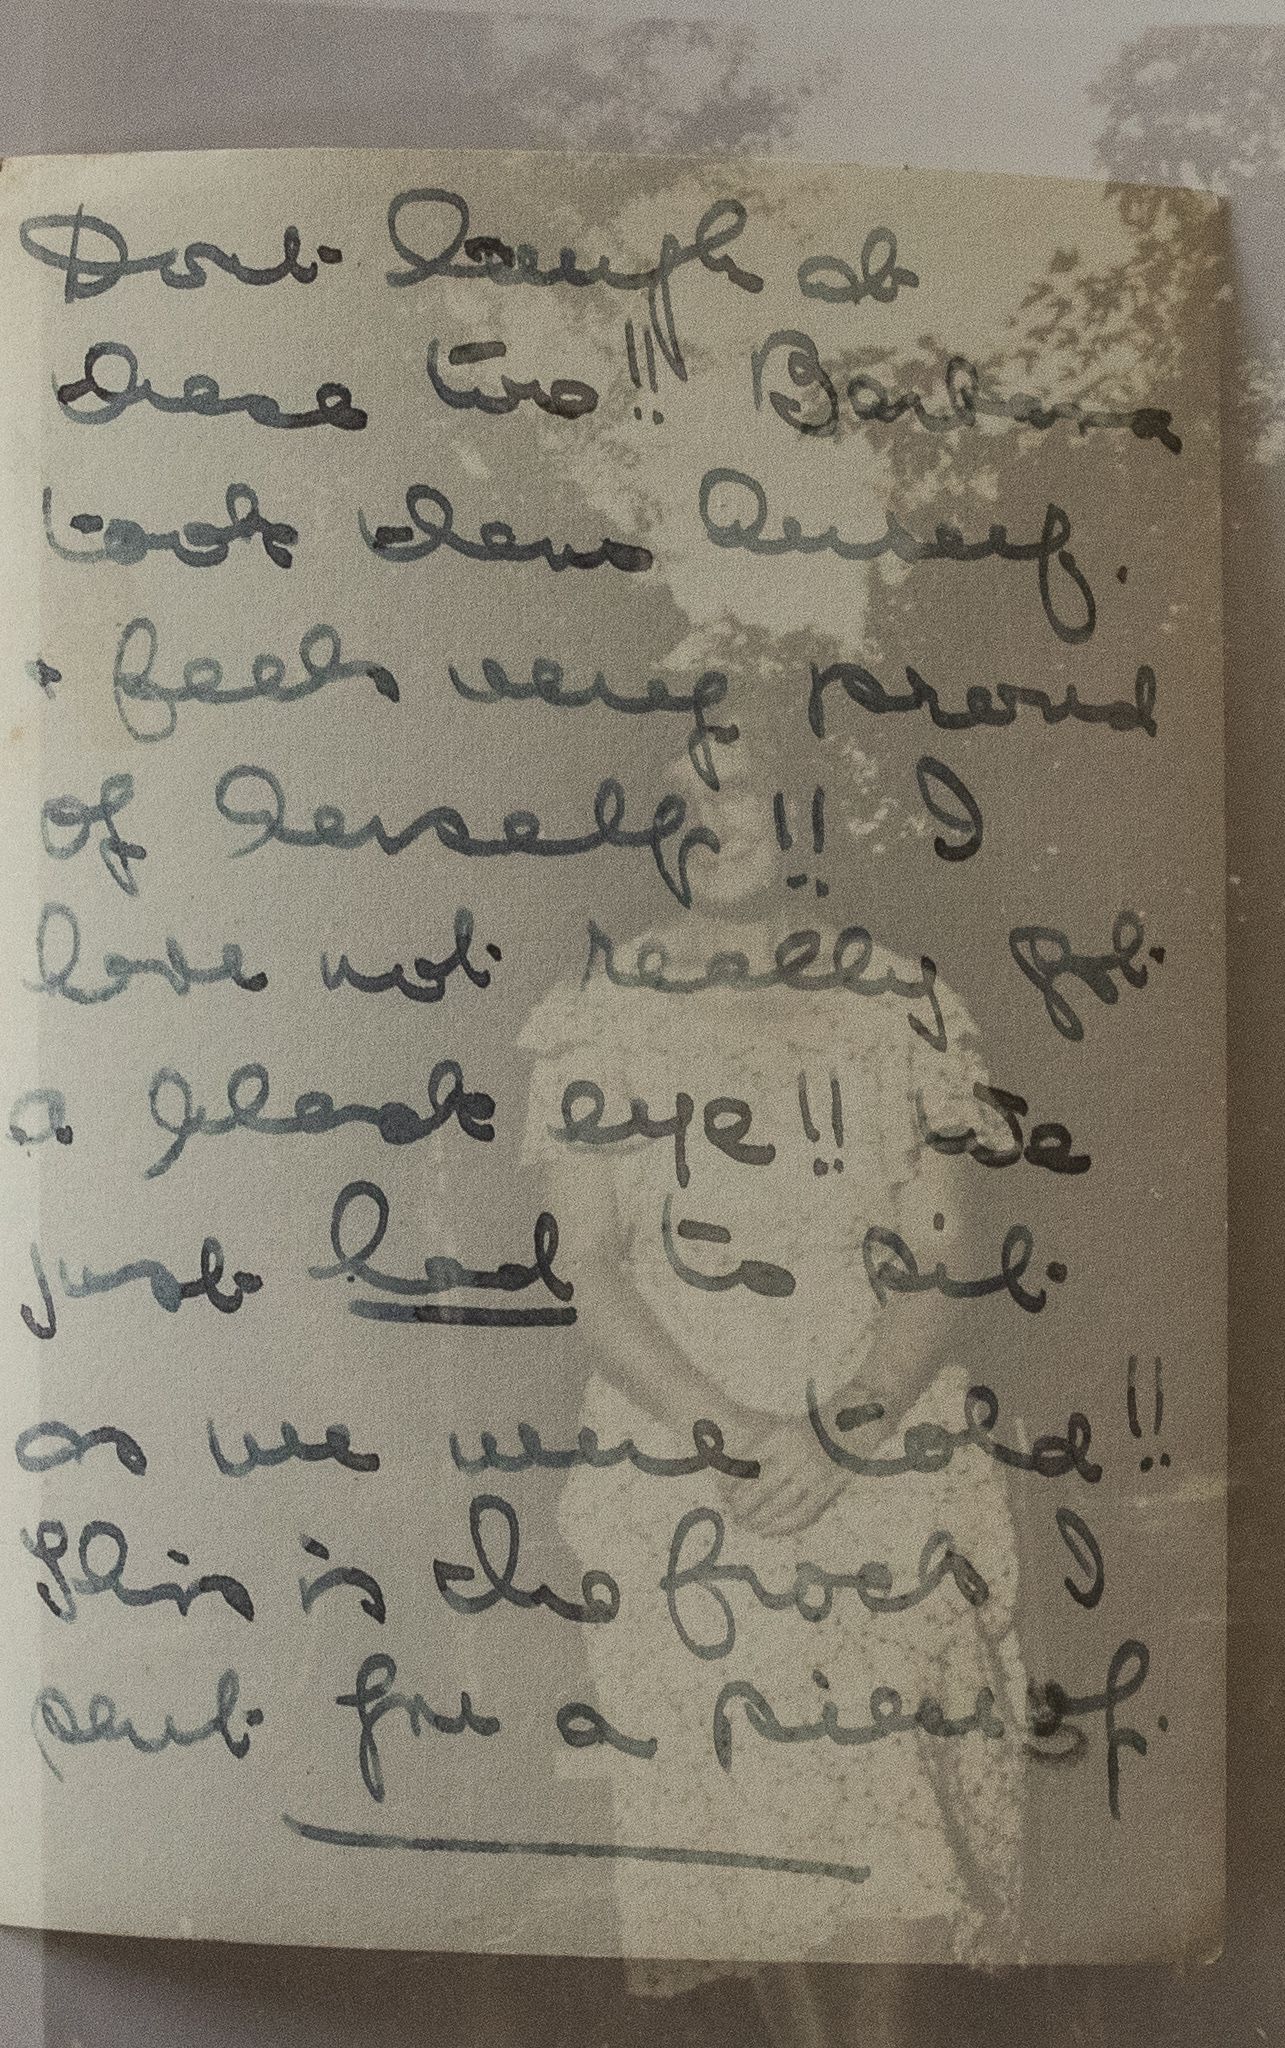 Dont laugh at
these two!! Barbara
took them herself.
+ feels very proud
of herself!! I
have not really got
a black eye!! We
just had to sit
as we were told!!
This is the frock I
sent you a piece of.